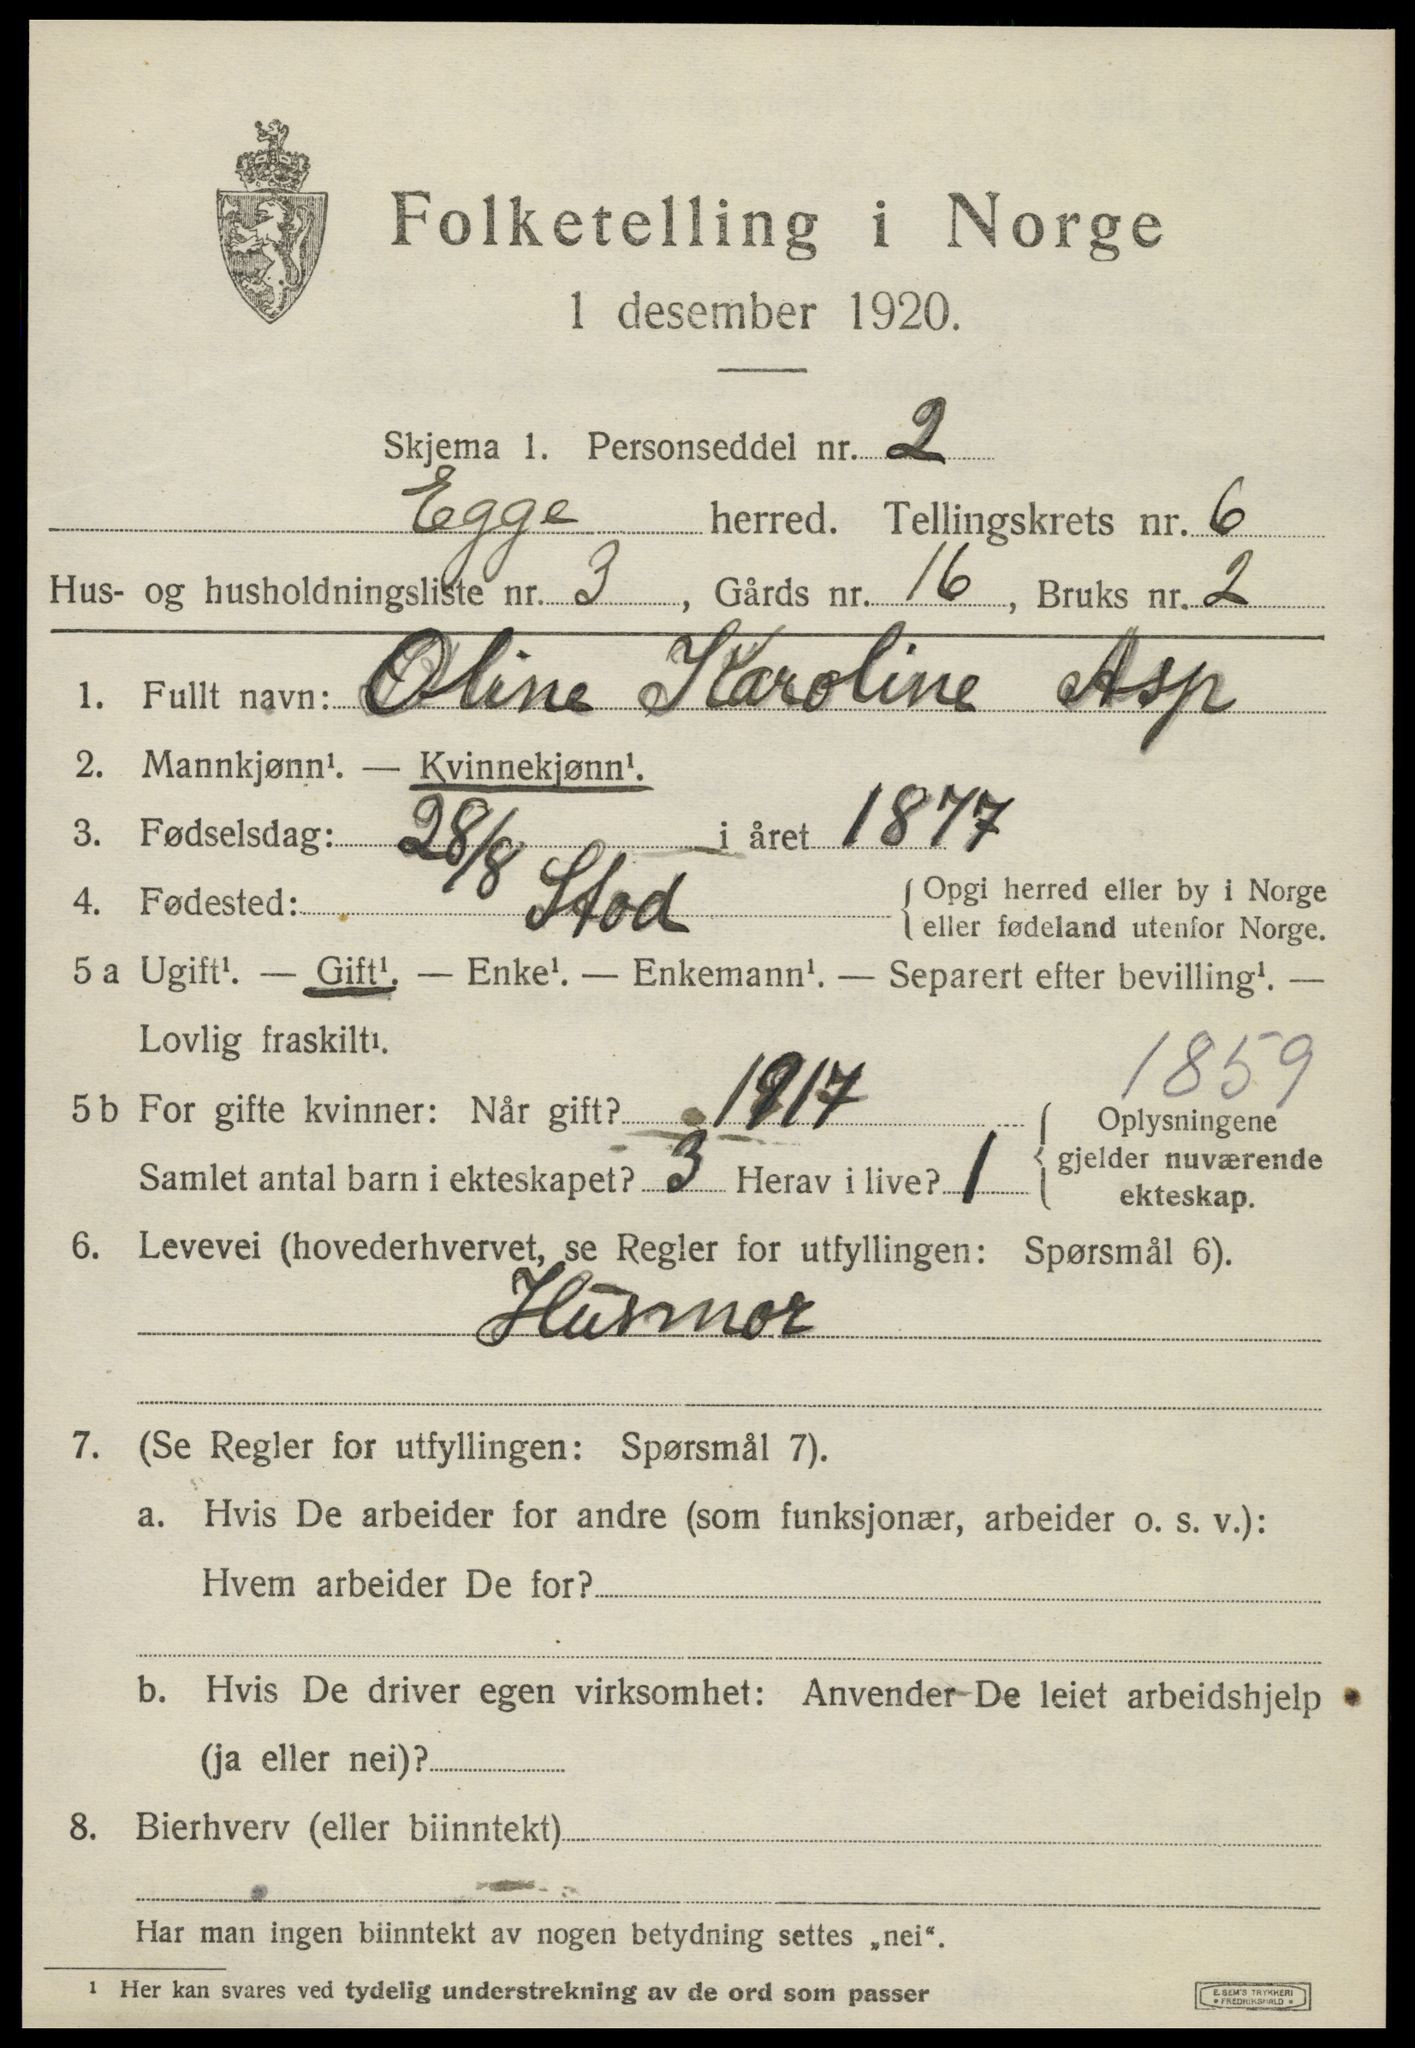 Folketelling i Norge
1 desember 1920.
Skjema 1. Personseddel nr. 2
Egge herred. Tellingskrets nr. 6
Hus- og husholdningsliste nr. 3, Gårds nr. 16, Bruks nr. 2
1. Fullt navn: Oline Karoline Asp
2. Mannkjønn¹. — Kvinnekjønn¹.
3. Fødselsdag: 28/8 i året 1877
4. Fødested: Stod { Opgi herred eller by i Norge
eller fødeland utenfor Norge.
5 a Ugift¹. — Gift¹. — Enke¹. — Enkemann¹. — Separert efter bevilling¹. —
Lovlig fraskilt¹.
1859
5 b For gifte kvinner: Når gift? 1917
Samlet antal barn i ekteskapet? 3 Herav i live? 1
{ Oplysningene
gjelder nuværende
ekteskap.
6. Levevei (hovederhvervet, se Regler for utfyllingen: Spørsmål 6).
Husmor
7. (Se Regler for utfyllingen: Spørsmål 7).
a. Hvis De arbeider for andre (som funksjonær, arbeider o. s. v.):
Hvem arbeider De for?
b. Hvis De driver egen virksomhet: Anvender De leiet arbeidshjelp
(ja eller nei)?
8. Bierhverv (eller biinntekt)
Har man ingen biinntekt av nogen betydning settes „nei“.
¹ Her kan svares ved tydelig understrekning av de ord som passer
E. SEM'S TRYKKERI
* FREDRIKSHALD *